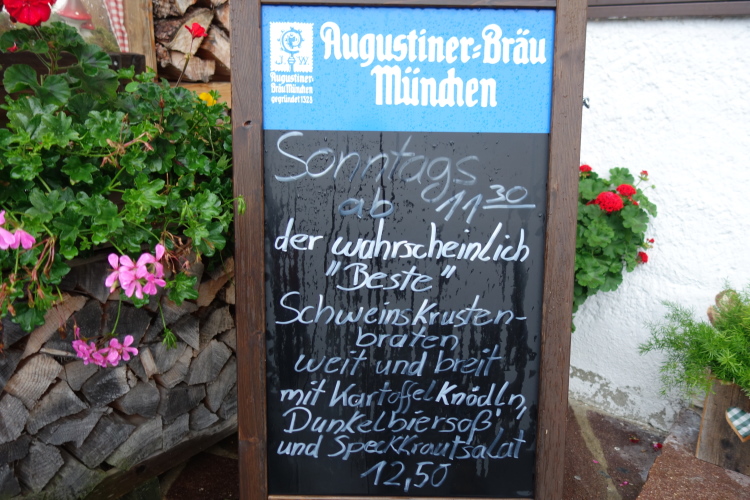 Augustiner-Bräu
München
J. W
Augustiner-
Bräu München
gegründet 1328
Sonntags
ab 11 30
der wahrscheinlich
"Beste"
Schweinskrusten-
braten
weit und breit
mit Kartoffel Knödln,
Dunkelbiersoß'
und Speckkrautsalat
12,50